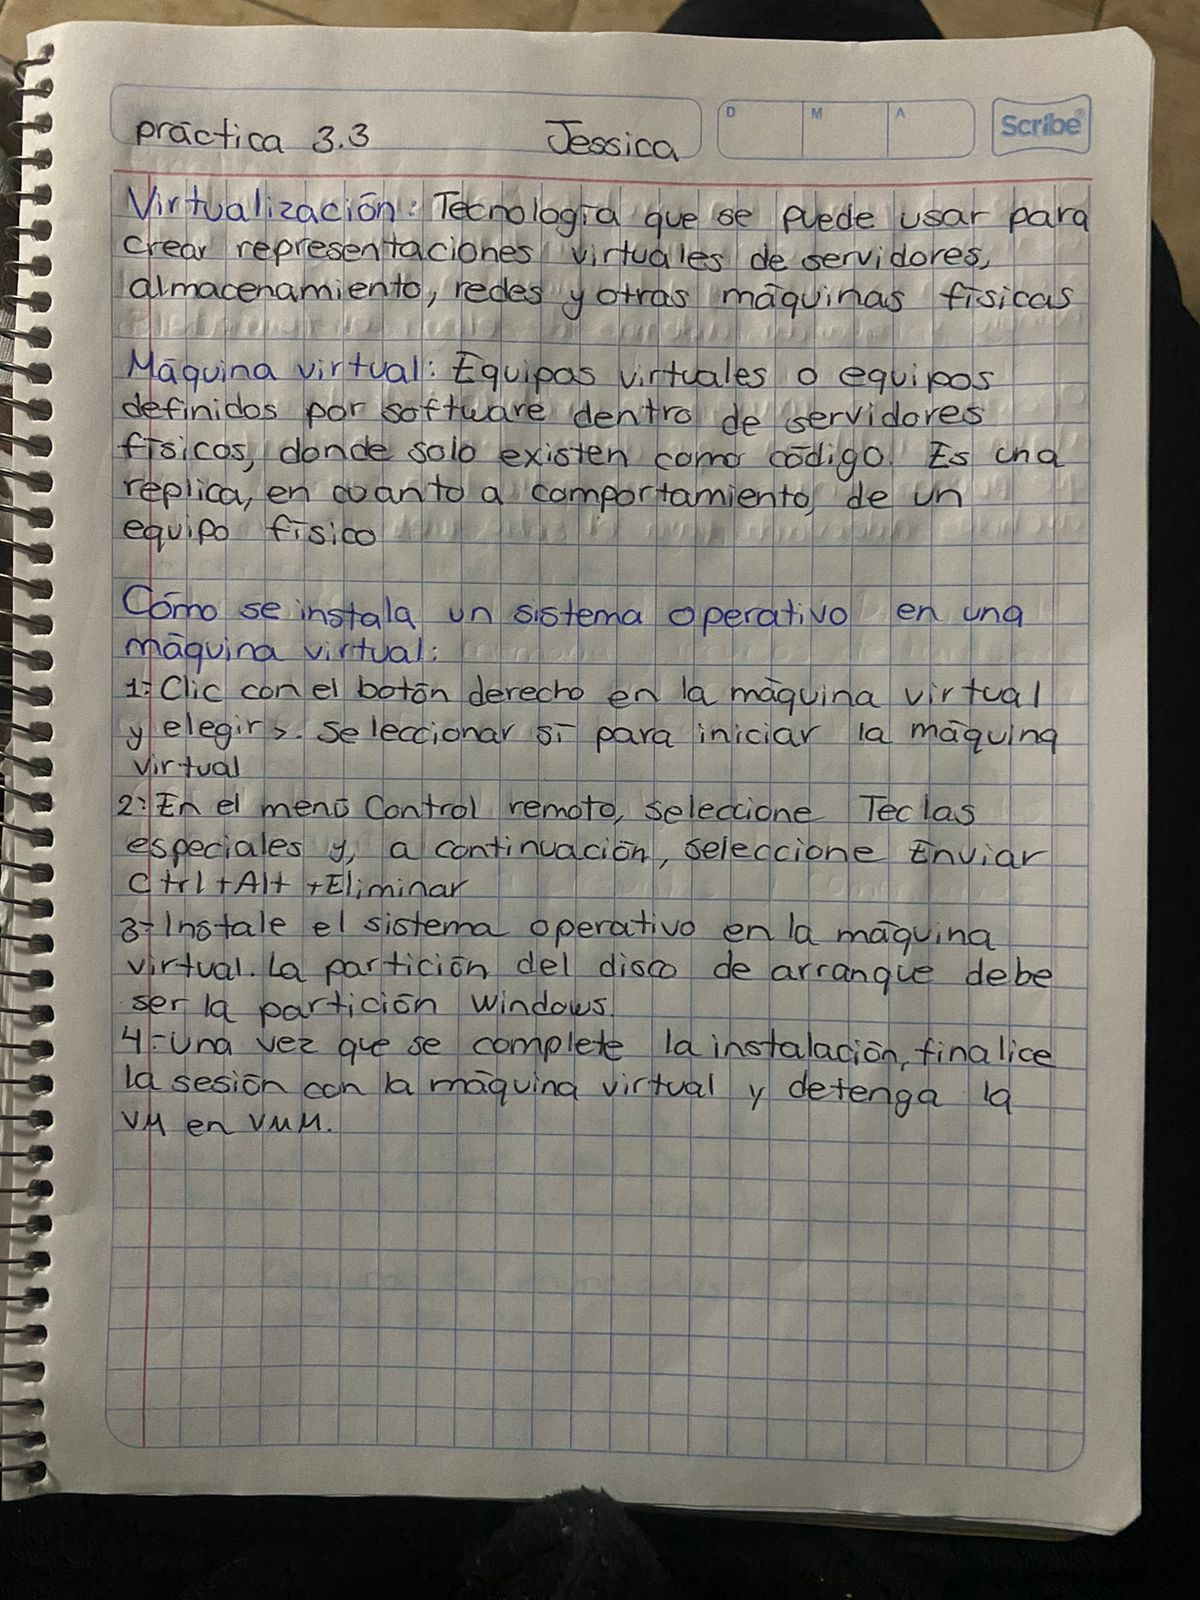 práctica 3.3 Jessica
D M A
Scribe
Virtualización: Tecnología que se puede usar para
crear representaciones virtuales de servidores,
almacenamiento, redes y otras máquinas físicas
Máquina virtual: Equipos virtuales o equipos
definidos por software dentro de servidores
físicos, donde solo existen como código. Es una
replica, en cuanto a comportamiento, de un
equipo físico
Cómo se instala un sistema operativo en una
máquina virtual:
1-Clic con el botón derecho en la máquina virtual
y elegir >. Seleccionar sí para iniciar la máquina
virtual
2-En el menú Control remoto, seleccione Teclas
especiales y, a continuación, seleccione Enviar
Ctrl+Alt+Eliminar
3-Instale el sistema operativo en la máquina
virtual. La partición del disco de arranque debe
ser la partición Windows.
4-Una vez que se complete la instalación, finalice
la sesión con la máquina virtual y detenga la
VM en VMM.